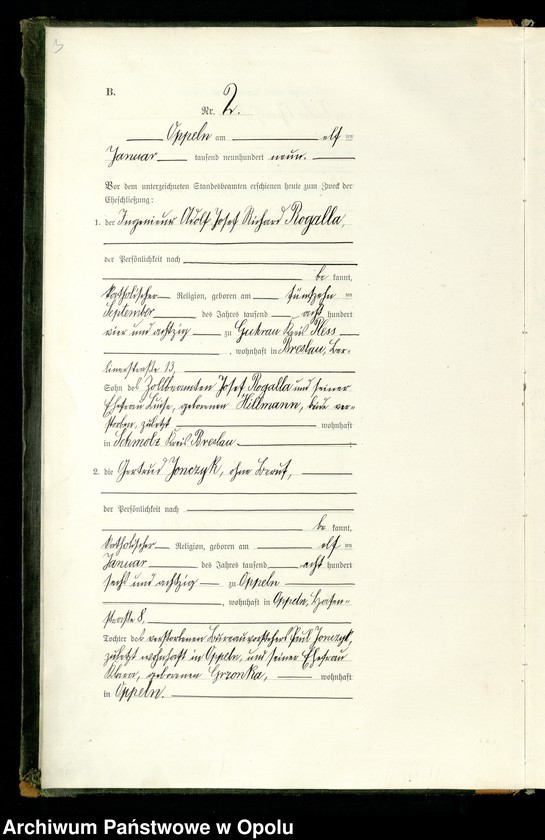 3
B.
Nr. 2.
Oppeln am elf ten
Januar tausend neunhundert neun.
Vor dem unterzeichneten Standesbeamten erschienen heute zum Zweck der
Eheschließung:
1. der Ingenieur Adolf Josef Richard Rogalla,
der Persönlichkeit nach
be kannt,
katholischer Religion, geboren am fünfzehn ten
September des Jahres tausend acht hundert
vier und achtzig zu Guhrau Kreis Pless
, wohnhaft in Breslau, Ber-
linerstraße 13,
Sohn des Zollbeamten Josef Rogalla und seiner
Ehefrau Luise, geborenen Hellmann, beide ver-
storben, zuletzt wohnhaft
in Schmolz Kreis Breslau
2. die Gertrud Jonczyk, ohne Beruf,
der Persönlichkeit nach
be kannt,
katholischer Religion, geboren am elf ten
Januar des Jahres tausend acht hundert
sechs und achtzig zu Oppeln
, wohnhaft in Oppeln, Hafen-
straße 8,
Tochter des verstorbenen Bureauvorstehers Paul Jonczyk,
zuletzt wohnhaft in Oppeln, und seiner Ehefrau
Klara, geborenen Grzonka, wohnhaft
in Oppeln.
Archiwum Państwowe w Opolu